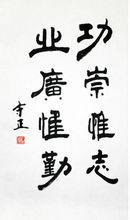 功崇惟志
业廣惟勤
守正